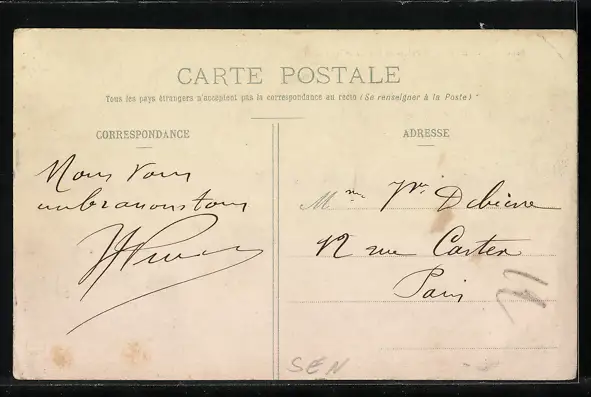 CARTE POSTALE
Tous les pays étrangers n'acceptent pas la correspondance au recto (Se renseigner à la Poste)
CORRESPONDANCE
ADRESSE
Nous vous
embrassons tous
Mme Vve
12 rue Carter
Paris
SEN